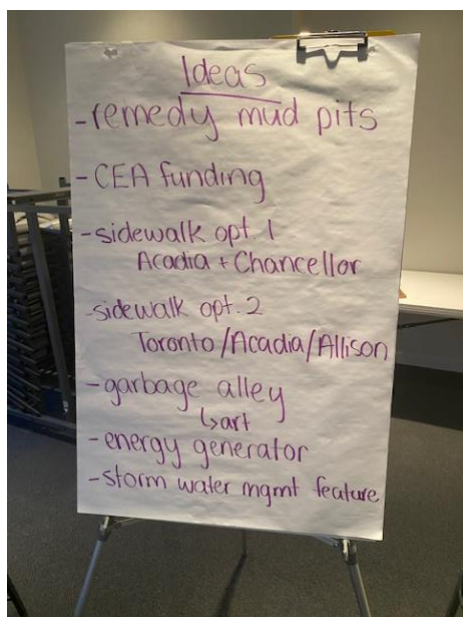 Ideas
-remedy mud pits
-CEA funding
-sidewalk opt. 1
Acadia + Chancellor
-sidewalk opt. 2
Toronto/Acadia/Allison
-garbage alley
↳art
-energy generator
-storm water mgmt feature